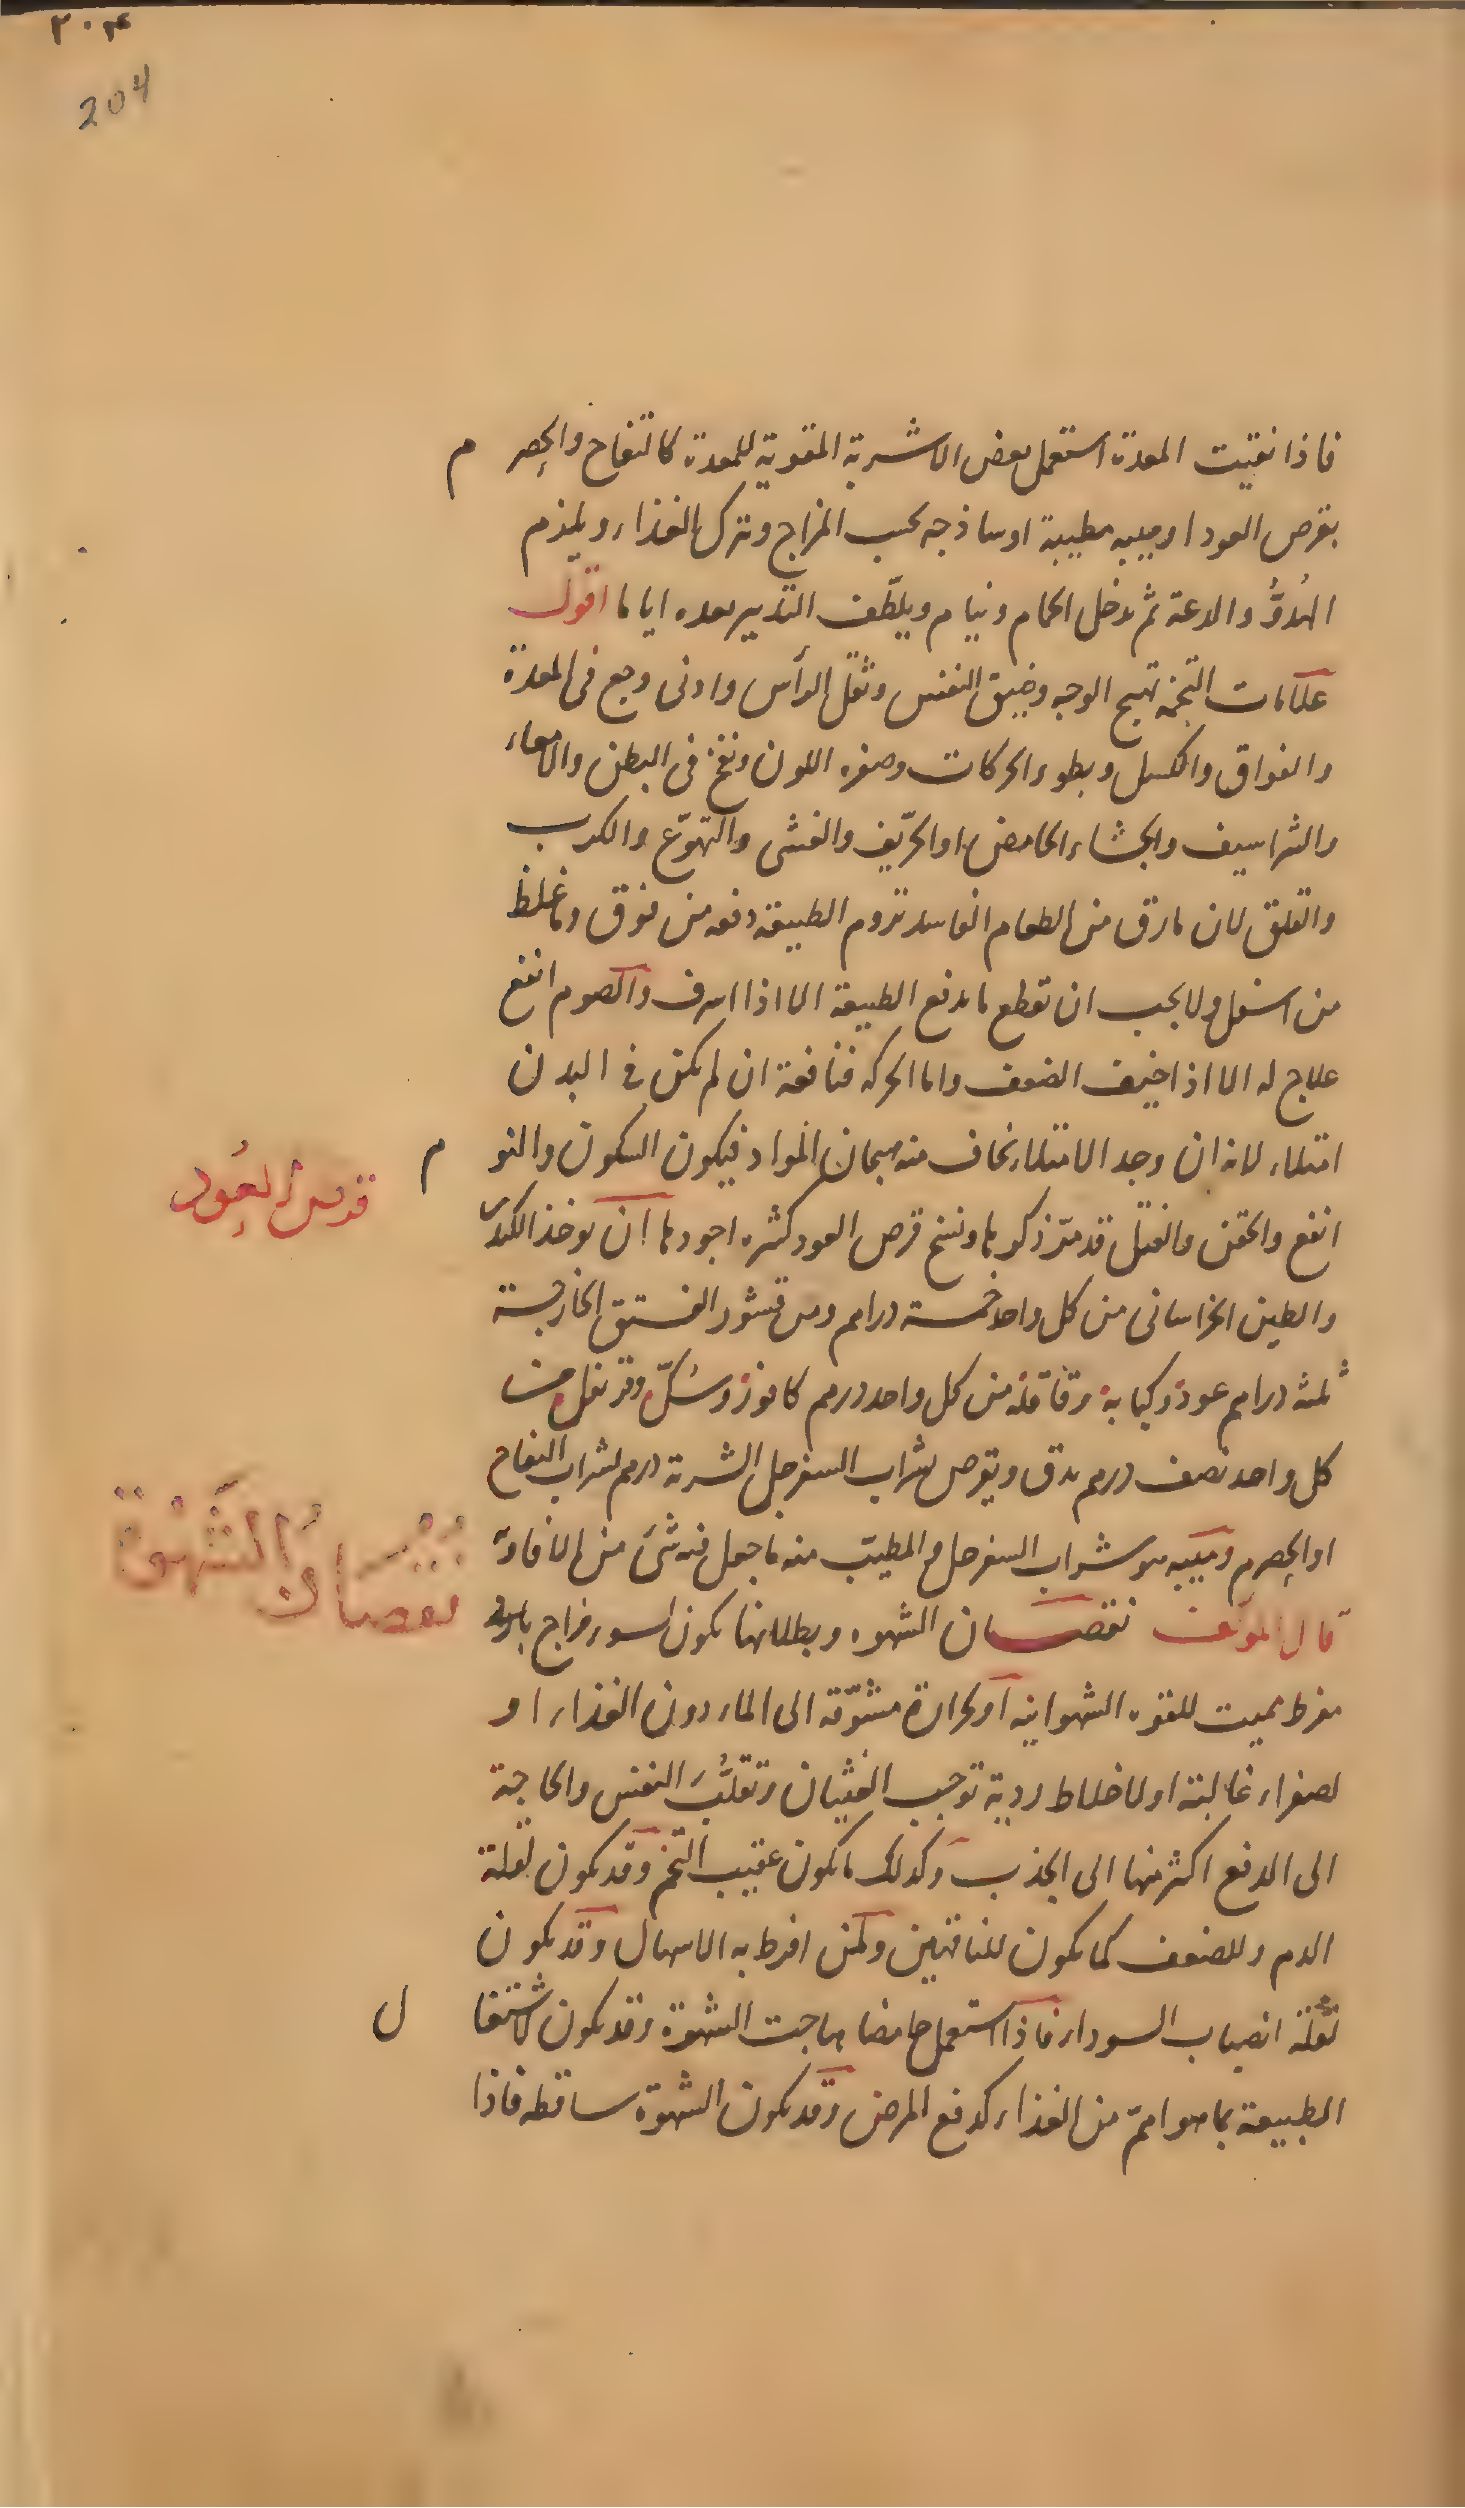 ٢٠٤
204
فاذا نقيت المعدة استعمل بعض الاشربة المقوية للمعدة كالتفاح والحصرم
بقرص العود او ميبه مطيبة او ساذجه بحسب المزاج وترك الغذاء ويلزم
الهدوُّ والدعة ثم يدخل الحمام وينام ويلطّف التدبير بعده اياما اقول
علامات التخمه تهيج الوجه وضيق النفس وثقل الرأس وادنى وجع فى المعدة
والفواق والكسل وبطوء الحركات وصفره اللون ونفخ فى البطن والامعاء
والشراسيف والجشاء الحامض او الحرّيف والغشى والتهوّع والكرب
والقلق لان مارق من الطعام الفاسد تروم الطبيعة دفعه من فوق وما غلظ
من اسفل ولا يجب ان تقطع ما يدفع الطبيعة الا اذا اسرف والصوم انفع
علاج له الا اذا خيف الضعف واما الحركه فنافعة ان لم يكن فى البدن
امتلاء لانه ان وجد الامتلاء يخاف منه هيجان المواد فيكون السكون والنوم
قرص العود
انفع والحقن والفتل قد مرّ ذكرها ونسخ قرص العود كثيره اجودها ان يوخذ الك
والطين الخراسانى من كل واحد خمسة دراهم ومن قشور الفستق الخارجة
ثلثه دراهم عود وكبابة وقاقله من كل واحد درهم كافور وسُكّ وقرنفل من
كل واحد نصف درهم يدق ويقرص بشراب السفرجل الشربة درهم بشراب التفاح
او الحصرم وميبه هو شراب السفرجل والمطيّب منه ما جعل فيه شئ من الافاويه
نقصانُ الشَّهْوَة
قال المولف نقصان الشهوه وبطلانها يكون لسوء مزاج بارد
مفرط مميت للقوه الشهوانيه او لحرارة مشوّقة الى الماء دون الغذاء او
لصفراء غالبة او لاخلاط ردية توجب الغثيان وتقلُّب النفس والحاجة
الى الدفع اكثر منها الى الجذب وكذلك ما يكون عقيب التخم وقد يكون لقلة
الدم وللضعف كما يكون للناقهين ولمن افرط به الاسهال وقد يكون
لقلة انصباب السوداء فاذا استعمل حامضا هاجت الشهوة وقد يكون لاشتغال
الطبيعة بما هو اهمّ من الغذاء كدفع المرض وقد يكون الشهوة ساقطه فاذا